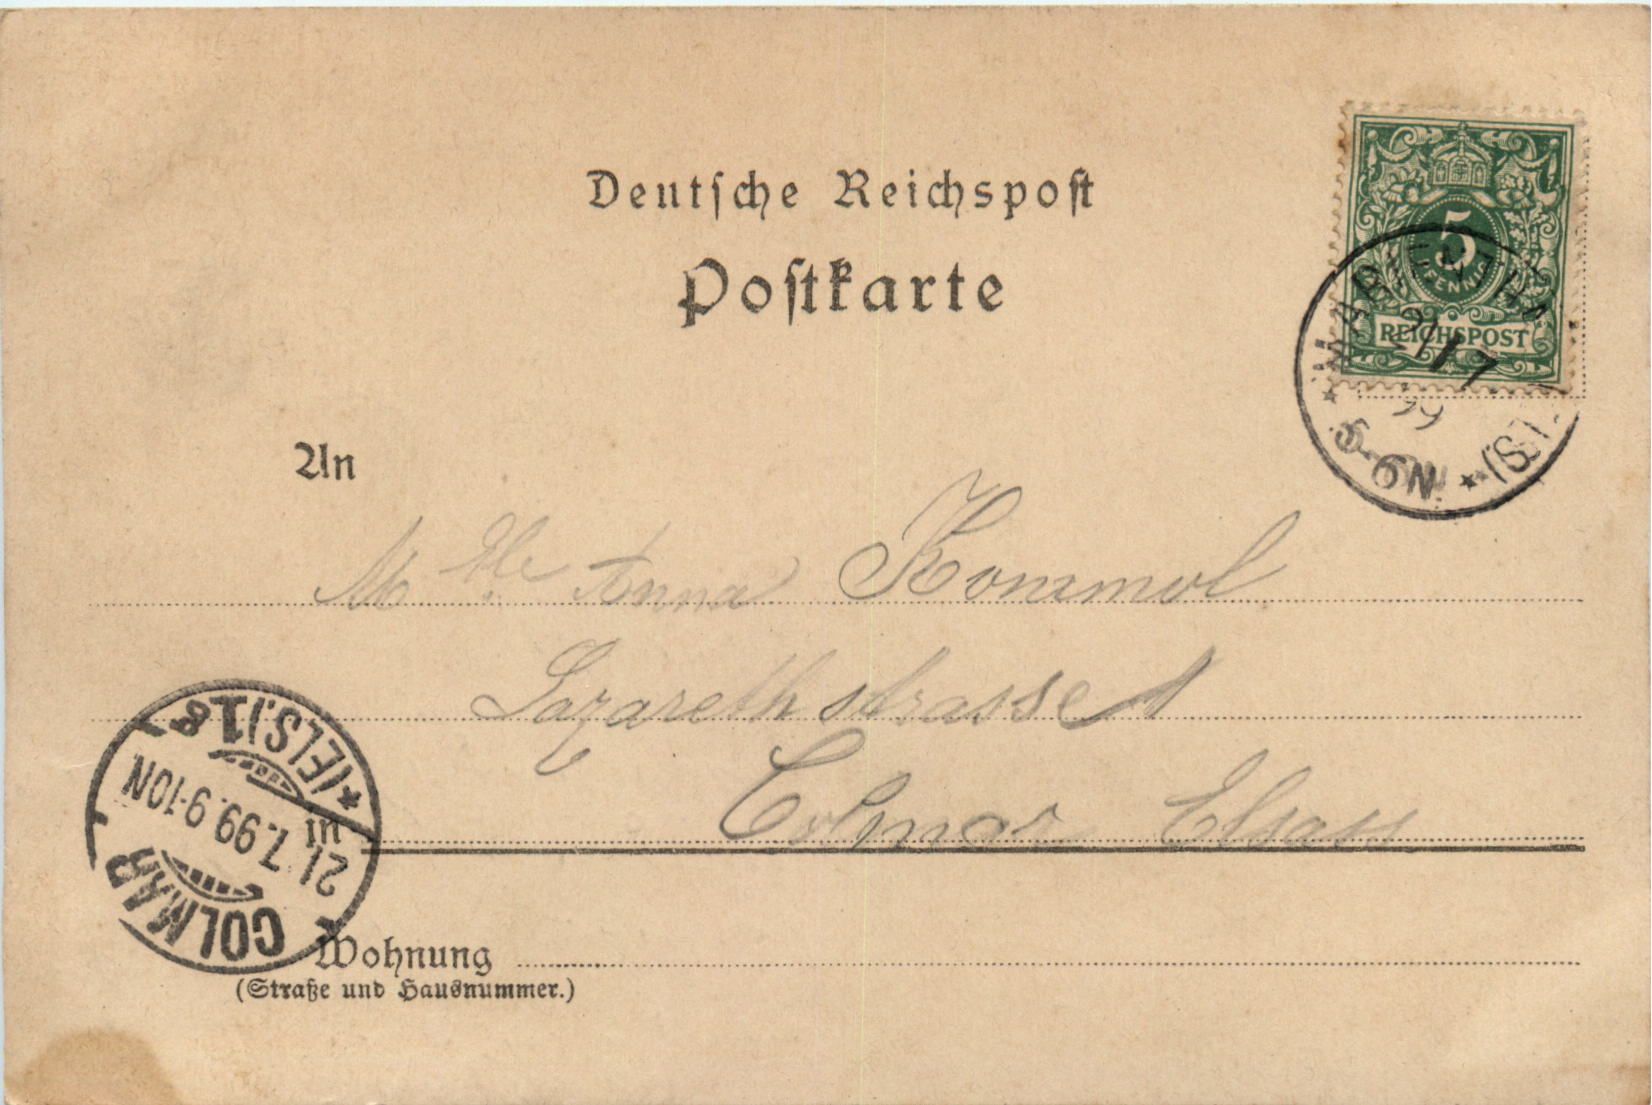 Deutsche Reichspost
Postkarte
5
PFENNIG
REICHSPOST
21/7
99
5-6N.
An
Mlle Anna Kommol
Lazarethstrasse 1
Colmar Elsass
in
COLMAR
21.7.99.9-10N
*(ELS.)1 8
Wohnung
(Straße und Hausnummer.)